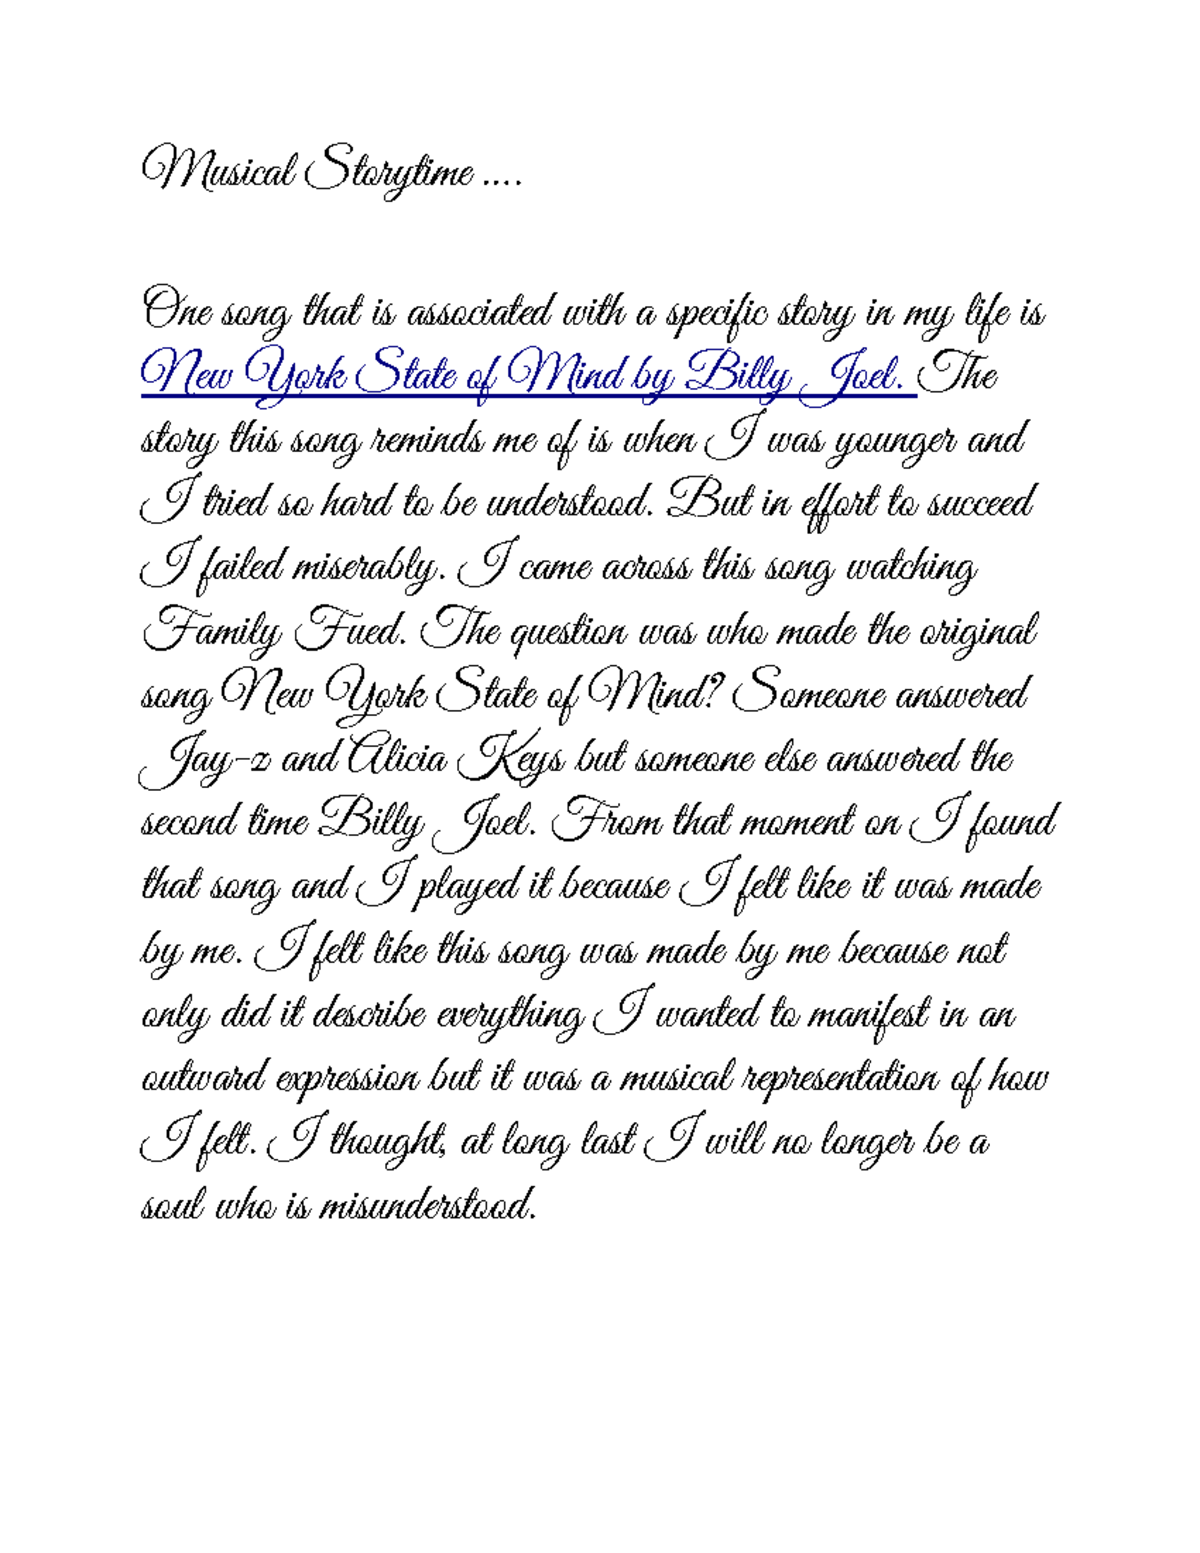 Musical Storytime ....
One song that is associated with a specific story in my life is
New York State of Mind by Billy Joel. The
story this song reminds me of is when I was younger and
I tried so hard to be understood. But in effort to succeed
I failed miserably. I came across this song watching
Family Fued. The question was who made the original
song New York State of Mind? Someone answered
Jay-z and Alicia Keys but someone else answered the
second time Billy Joel. From that moment on I found
that song and I played it because I felt like it was made
by me. I felt like this song was made by me because not
only did it describe everything I wanted to manifest in an
outward expression but it was a musical representation of how
I felt. I thought, at long last I will no longer be a
soul who is misunderstood.